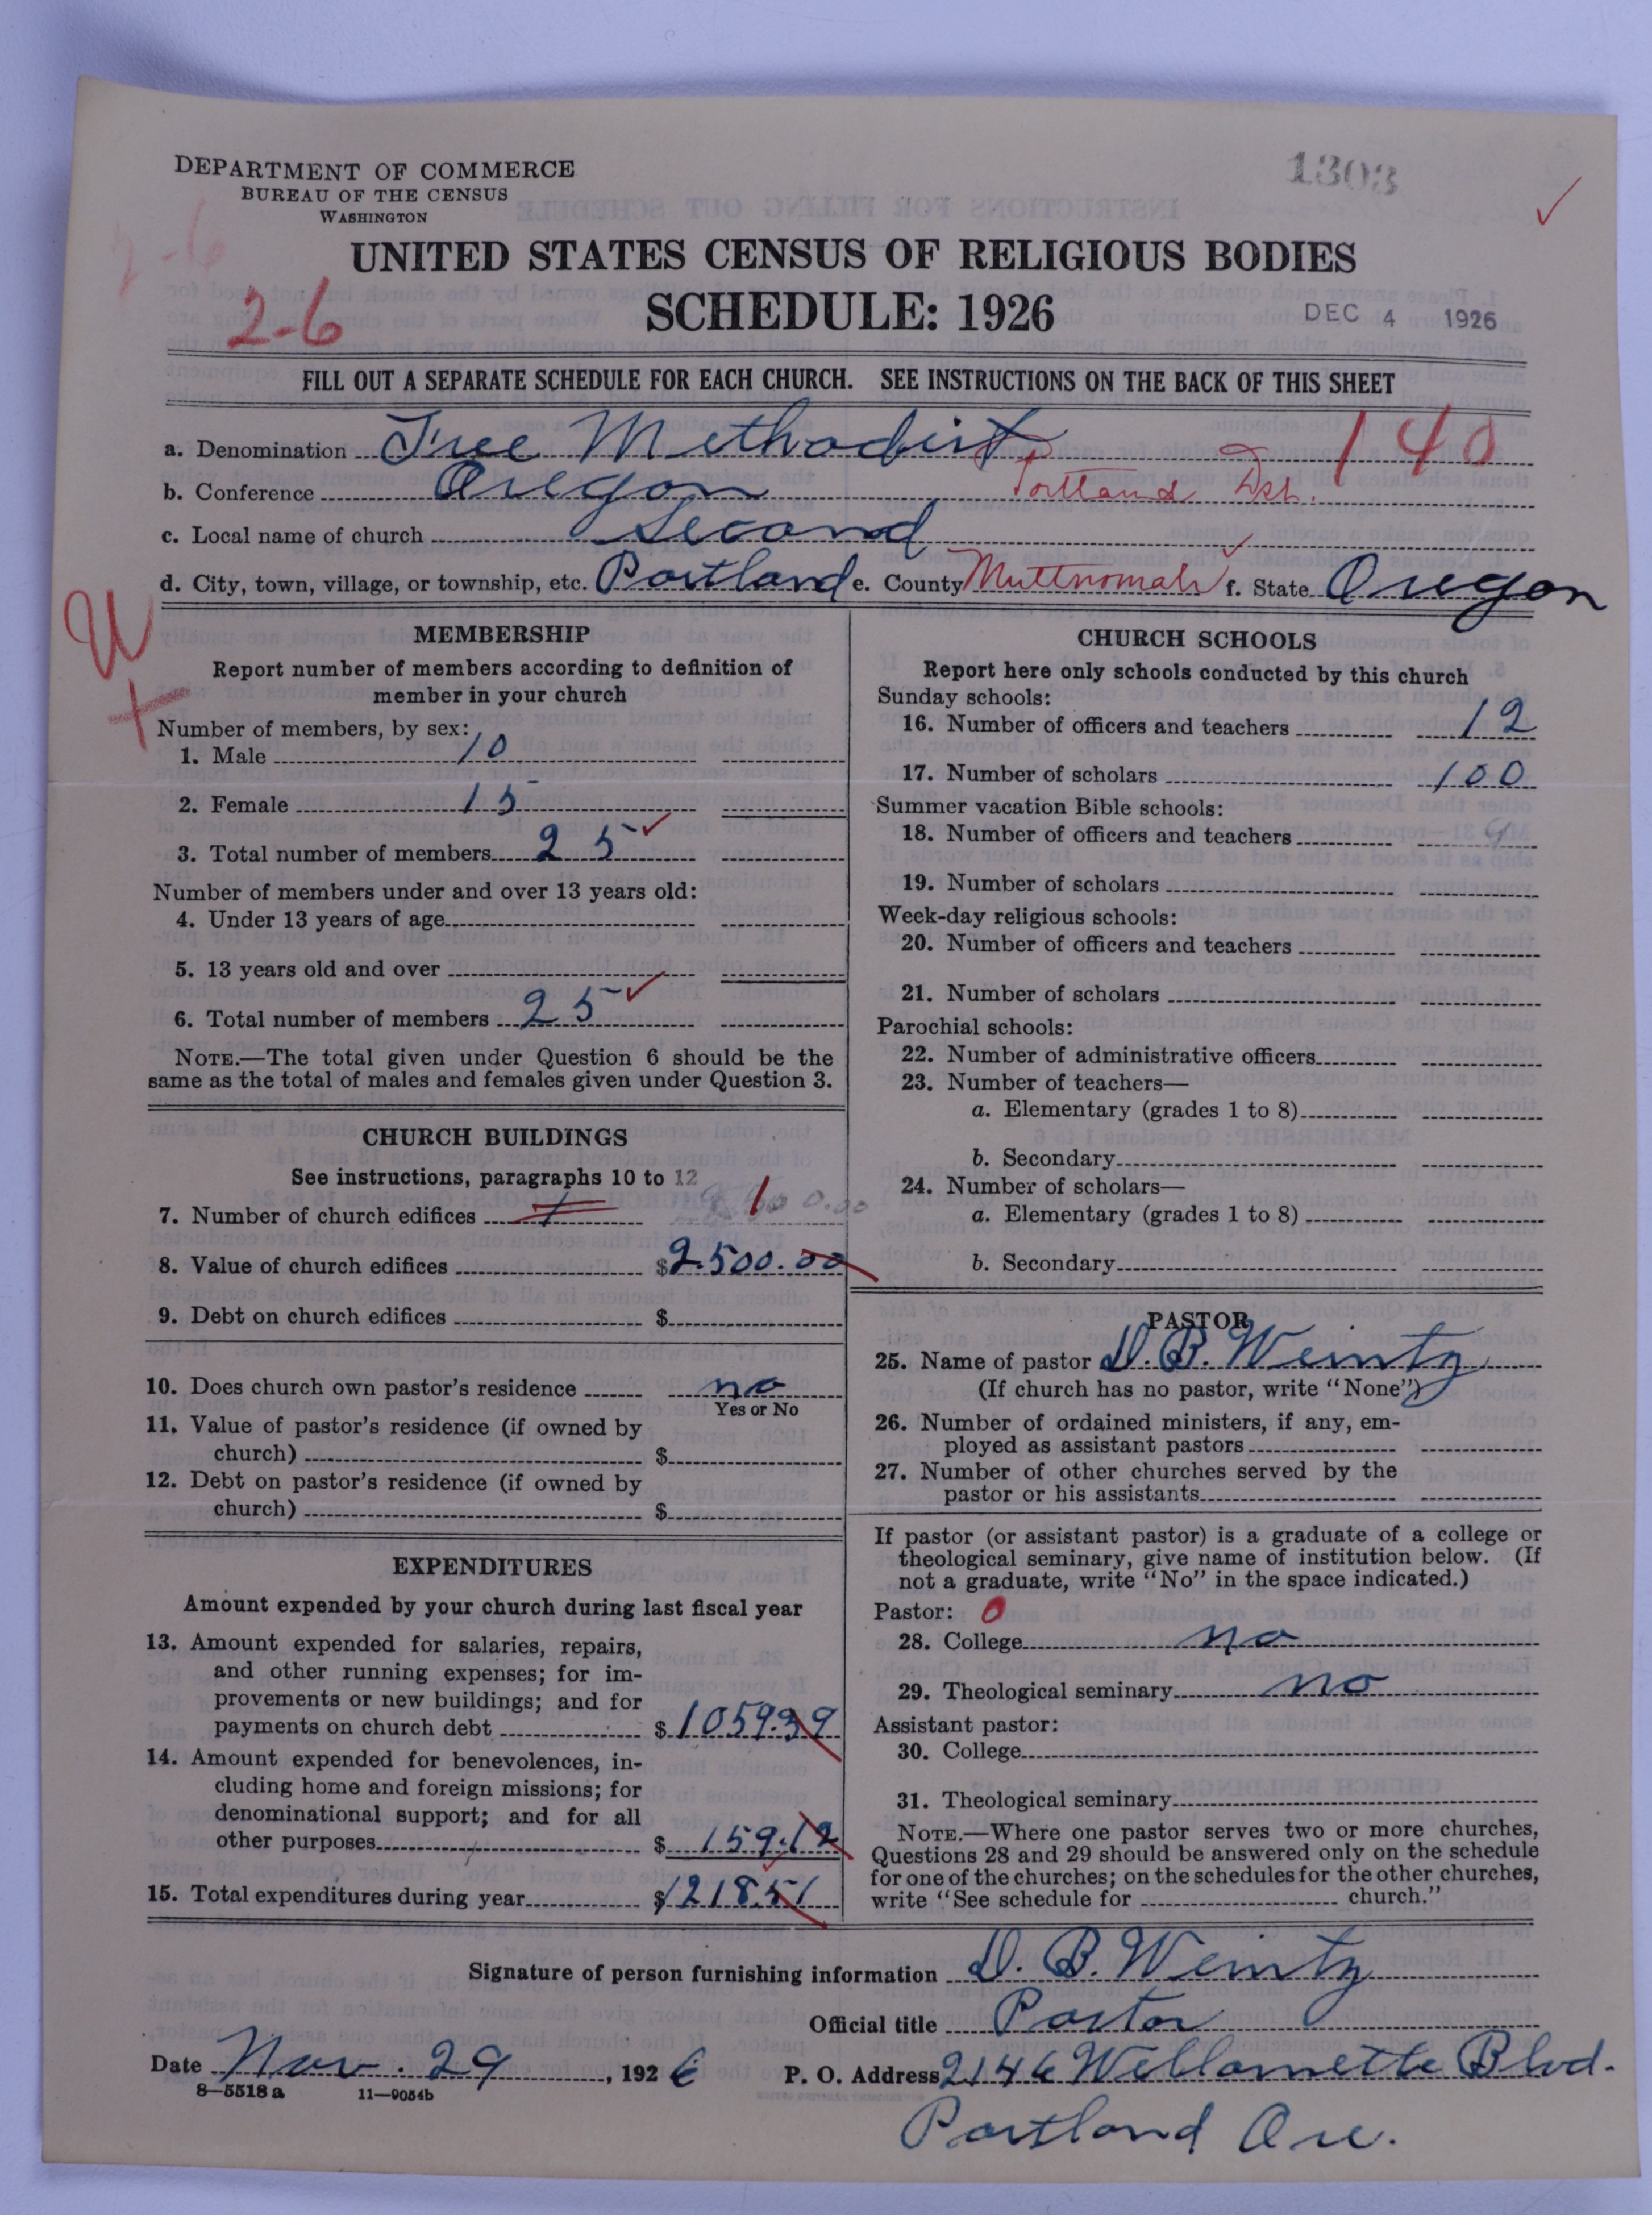 DEPARTMENT OF COMMERCE
BUREAU OF THE CENSUS
WASHINGTON
1303
UNITED STATES CENSUS OF RELIGIOUS BODIES
2-6
2-6
SCHEDULE: 1926
DEC 4 1926
FILL OUT A SEPARATE SCHEDULE FOR EACH CHURCH. SEE INSTRUCTIONS ON THE BACK OF THIS SHEET
a. Denomination Free Methodist 140
b. Conference Oregon Portland Dist.
c. Local name of church Second
d. City, town, village, or township, etc. Portland e. County Multnomah f. State Oregon
MEMBERSHIP
Report number of members according to definition of
member in your church
Number of members, by sex:
1. Male 10
2. Female 15
3. Total number of members 25
Number of members under and over 13 years old:
4. Under 13 years of age
5. 13 years old and over
6. Total number of members 25
NOTE.—The total given under Question 6 should be the
same as the total of males and females given under Question 3.
CHURCH BUILDINGS
See instructions, paragraphs 10 to 12
7. Number of church edifices 1 1
8. Value of church edifices $2500.00
9. Debt on church edifices $
10. Does church own pastor's residence no
Yes or No
11. Value of pastor's residence (if owned by
church) $
12. Debt on pastor's residence (if owned by
church) $
EXPENDITURES
Amount expended by your church during last fiscal year
13. Amount expended for salaries, repairs,
and other running expenses; for im-
provements or new buildings; and for
payments on church debt $1059.39
14. Amount expended for benevolences, in-
cluding home and foreign missions; for
denominational support; and for all
other purposes $159.12
15. Total expenditures during year $1218.51
CHURCH SCHOOLS
Report here only schools conducted by this church
Sunday schools:
16. Number of officers and teachers 12
17. Number of scholars 100
Summer vacation Bible schools:
18. Number of officers and teachers
19. Number of scholars
Week-day religious schools:
20. Number of officers and teachers
21. Number of scholars
Parochial schools:
22. Number of administrative officers
23. Number of teachers—
a. Elementary (grades 1 to 8)
b. Secondary
24. Number of scholars—
a. Elementary (grades 1 to 8)
b. Secondary
PASTOR
25. Name of pastor D. B. Weintz
(If church has no pastor, write "None")
26. Number of ordained ministers, if any, em-
ployed as assistant pastors
27. Number of other churches served by the
pastor or his assistants
If pastor (or assistant pastor) is a graduate of a college or
theological seminary, give name of institution below. (If
not a graduate, write "No" in the space indicated.)
Pastor: 0
28. College no
29. Theological seminary no
Assistant pastor:
30. College
31. Theological seminary
NOTE.—Where one pastor serves two or more churches,
Questions 28 and 29 should be answered only on the schedule
for one of the churches; on the schedules for the other churches,
write "See schedule for church."
Signature of person furnishing information D. B. Weintz
Official title Pastor
Date Nov. 29, 1926 P. O. Address 2146 Willamette Blvd.
8—5518a 11—9054b
Portland Ore.